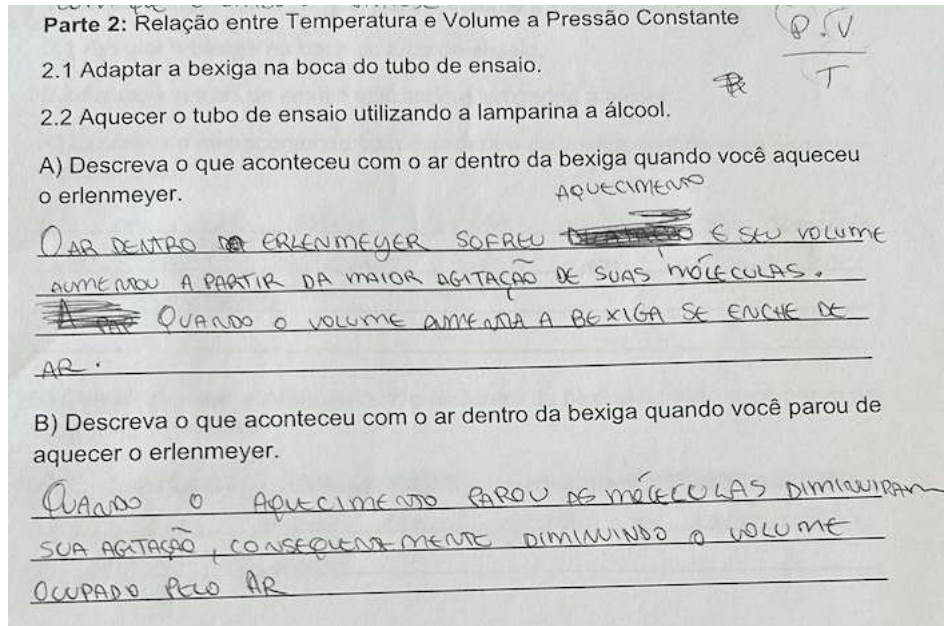 Parte 2: Relação entre Temperatura e Volume a Pressão Constante
P.V
T
2.1 Adaptar a bexiga na boca do tubo de ensaio.
2.2 Aquecer o tubo de ensaio utilizando a lamparina a álcool.
A) Descreva o que aconteceu com o ar dentro da bexiga quando você aqueceu
o erlenmeyer.
AQUECIMENTO
O AR DENTRO DO ERLENMEYER SOFREU E SEU VOLUME
AUMENTOU A PARTIR DA MAIOR AGITAÇÃO DE SUAS MOLÉCULAS.
QUANDO O VOLUME AUMENTA A BEXIGA SE ENCHE DE
AR.
B) Descreva o que aconteceu com o ar dentro da bexiga quando você parou de
aquecer o erlenmeyer.
QUANDO O AQUECIMENTO PAROU AS MOLÉCULAS DIMINUIRAM
SUA AGITAÇÃO, CONSEQUENTEMENTE DIMINUINDO O VOLUME
OCUPADO PELO AR